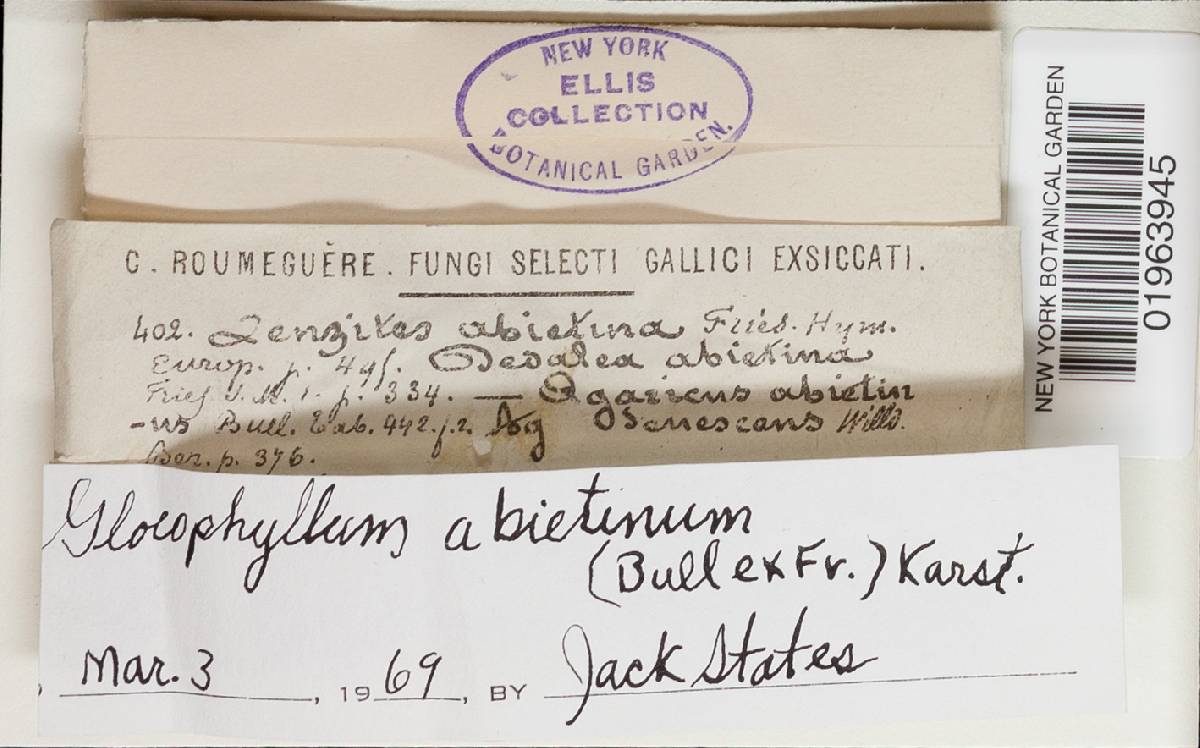 NEW YORK
ELLIS
COLLECTION
BOTANICAL GARDEN.
C. ROUMEGUÈRE. FUNGI SELECTI GALLICI EXSICCATI.
402. Lenzites abietina Fries. Hym.
Europ. p. 495. Dedalea abietina
Fries S. M. 1. p. 334. — Agaricus abietin
-us Bull. Tab. 442. f. 2. Ag Senescens Willd.
Ber. p. 376.
Gloeophyllum abietinum
(Bull ex Fr.) Karst.
Mar. 3, 1969, BY Jack States
NEW YORK BOTANICAL GARDEN
01963945